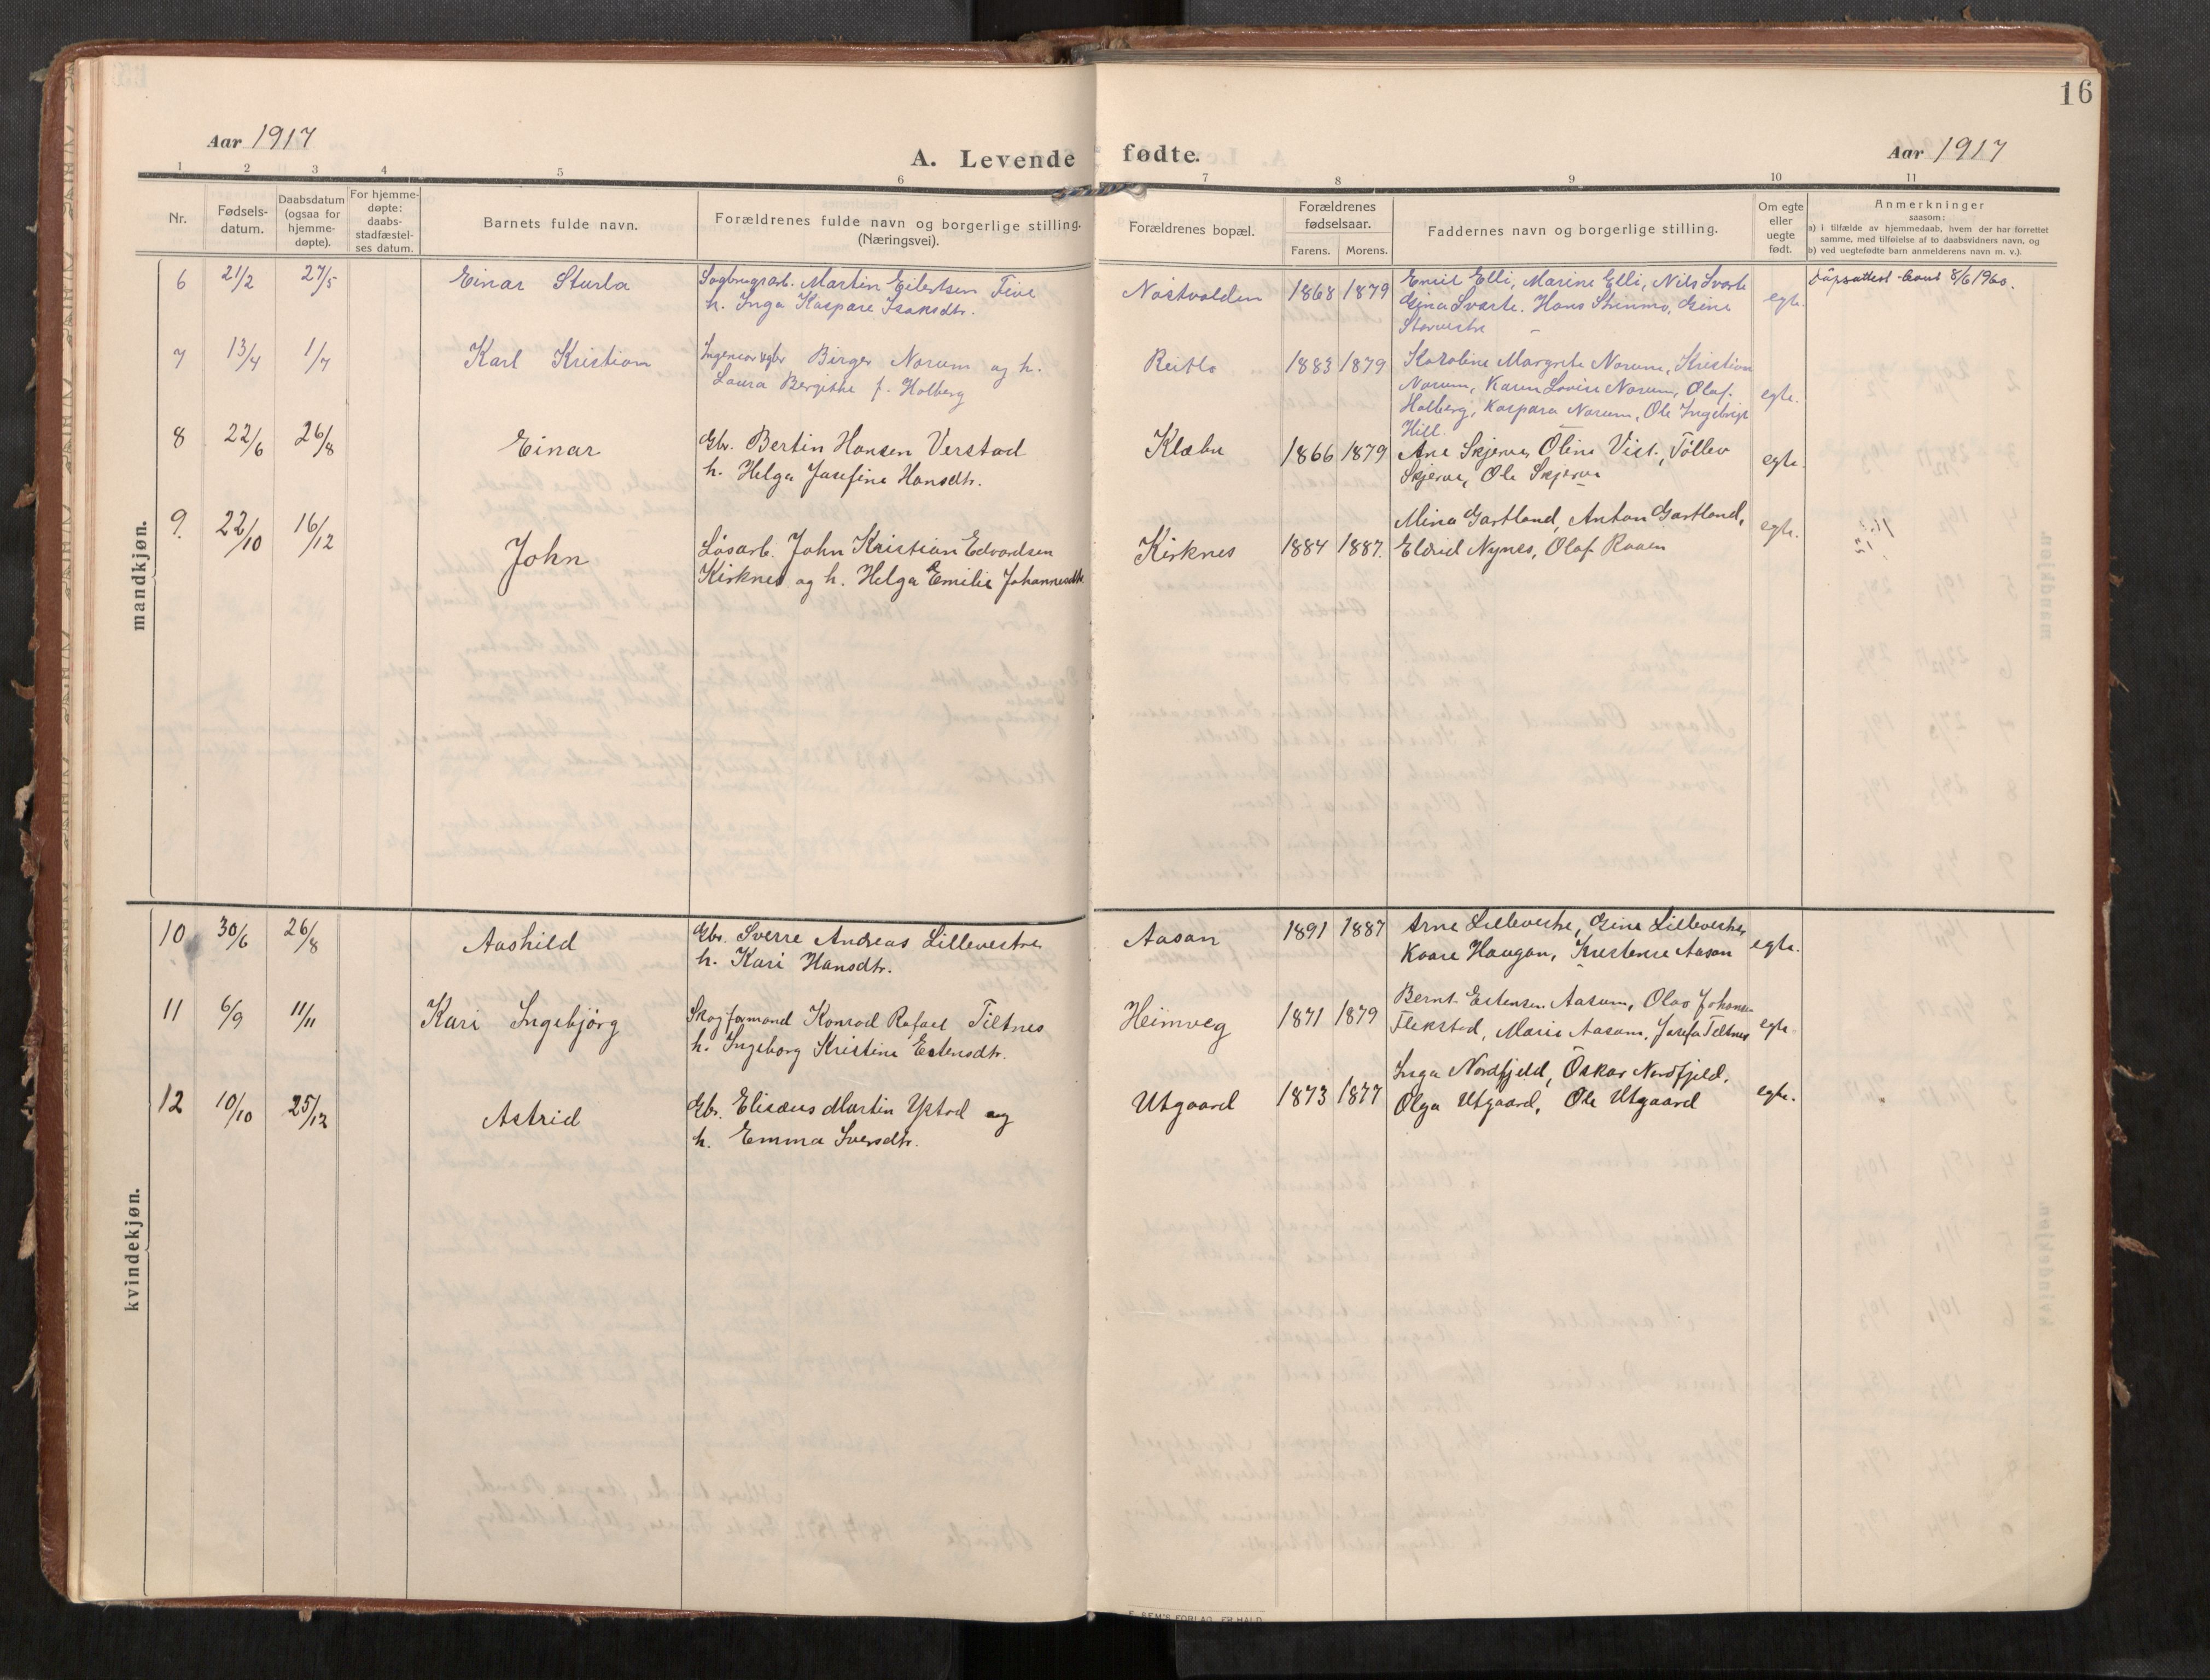 16
Aar 1917
A. Levende fødte.
Aar 1917
1 2 3 4 5 6 7 8 9 10 11
Nr.
Fødsels-
datum.
Daabsdatum
(ogsaa for
hjemme-
døpte).
For hjemme-
døpte:
daabs-
stadfæstel-
ses datum.
Barnets fulde navn.
Forældrenes fulde navn og borgerlige stilling.
(Næringsvei).
Forældrenes bopæl.
Forældrenes
fødselsaar.
Farens. Morens.
Faddernes navn og borgerlige stilling.
Om egte
eller
uegte
født.
Anmerkninger
saasom:
a) i tilfælde av hjemmedaab, hvem der har forrettet
samme, med tilføielse af to daabsvidners navn, og
b) ved uegtefødte barn anmelderens navn m. v.).
mandkjøn.
6 21/2 27/5 Einar Sturla
Sagbrugsarb. Martin Eilertsen Five
h. Inga Kaspara Isaksdtr.
Nøstvolden 1868 1879
Emil Elli, Marine Elli, Nils Svarte
Gina Svarte. Hans Stenmo, Gine
Storvestre
egte.
Dåpsattest 8/6 1960.
7 13/4 1/7 Karl Kristian
Birger Norum og h.
Laura Bergitte f. Holberg
Reitlo 1883 1879
Karoline Margrete Norum, Kristian
Norum, Karen Lovise Norum, Olaf
Holberg, Kaspara Norum, Ole Ingebrigt
Hill.
egte.
8 22/6 26/8 Einar
Gbr. Bertin Hansen Verstad
h. Helga Josefine Hansdtr.
Klæbu 1866 1879
Ane Skjerve, Oline Vist, Tøllev
Skjerve, Ole Skjerve
egte.
9. 22/10 16/12 John
Løsarb. John Kristian Edvardsen
Kirknes og h. Helga Emilie Johannesdtr
Kirknes 1884 1887.
Mina Gartland, Anton Gartland,
Eldrid Nynes, Olaf Raaen
egte.
kvindekjøn.
10 30/6 26/8 Aashild
Gbr. Sverre Andreas Lillevestre
h. Kari Hansdtr.
Aasan 1891 1887
Arne Lillevestre, Gina Lillevestre
Kaare Haugan, Kristense Aasan
egte.
11 6/9 11/11 Kari Ingebjørg
Skogformand Konrad Rafael Tiltnes
h. Ingeborg Kristine Estensdtr.
Heimveg 1871 1879
Bernt Estensen Aasum, Olav Johansen
Flekstad, Marie Aasum, Josefa Tiltnes
egte.
12 10/10 25/12 Astrid
Gbr. Elisæus Martin Ystad og
h. Emma Iversdtr.
Utgaard 1873 1877
Inga Nordfjeld, Oskar Nordfjeld,
Olga Utgaard, Ole Utgaard
egte.